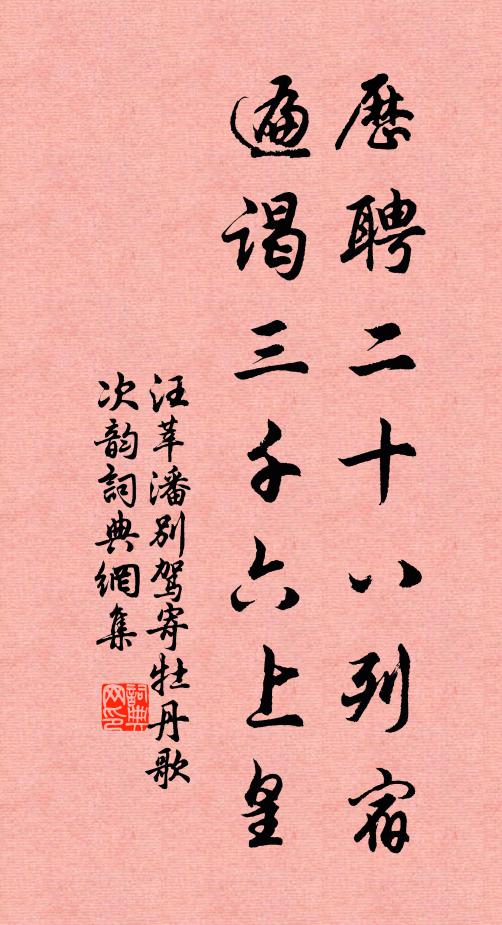 歷聘二十八列宿
遍谒三千六上皇
汪莘潘别驾寄牡丹歌
次韵詞典網集
詞典
网印